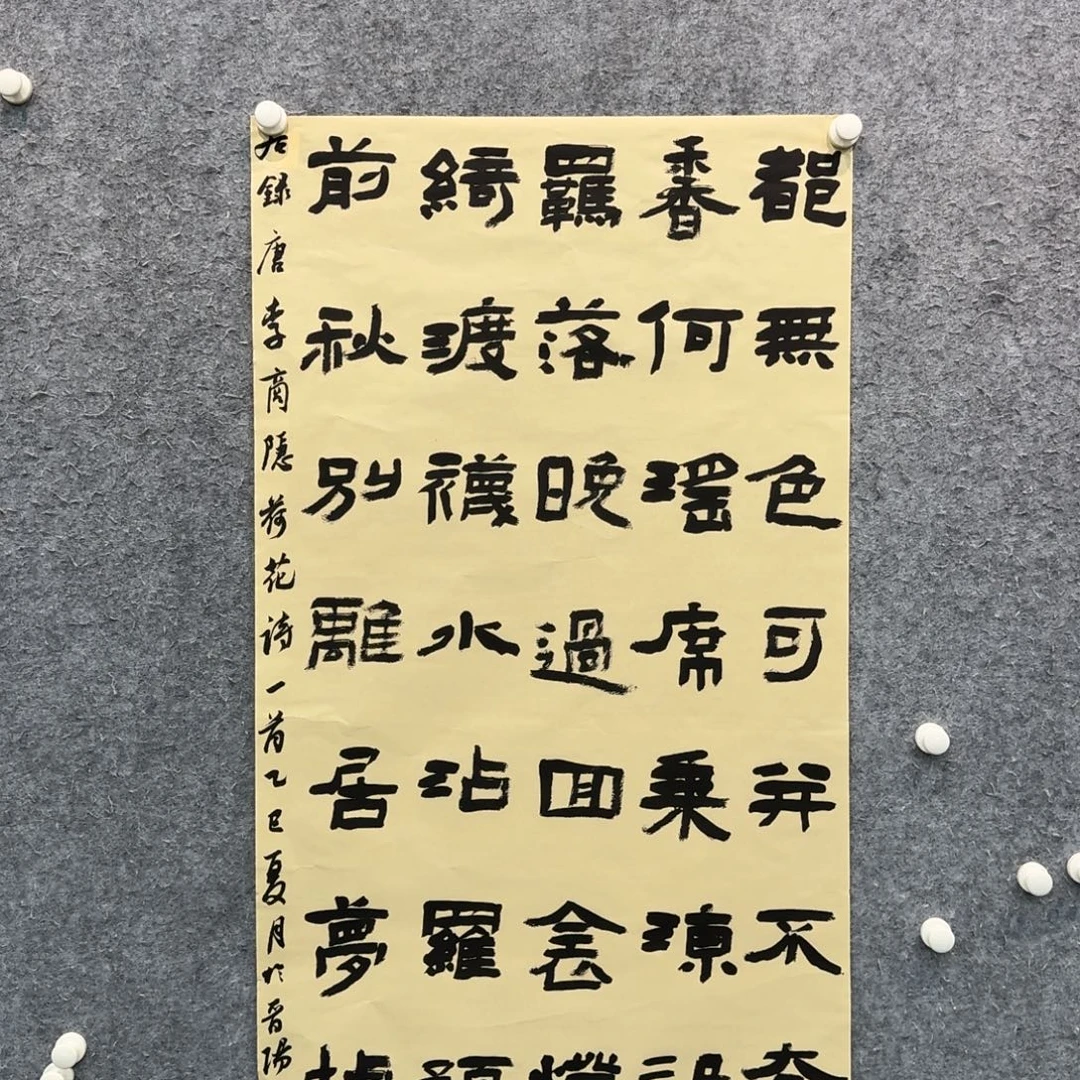 都無色可并不
香何瑤席乘涼
羈落晚過回衾
綺渡襪水沾羅預
前秋別離居夢
右錄唐李商隱荷花詩一首乙巳夏月於晉陽